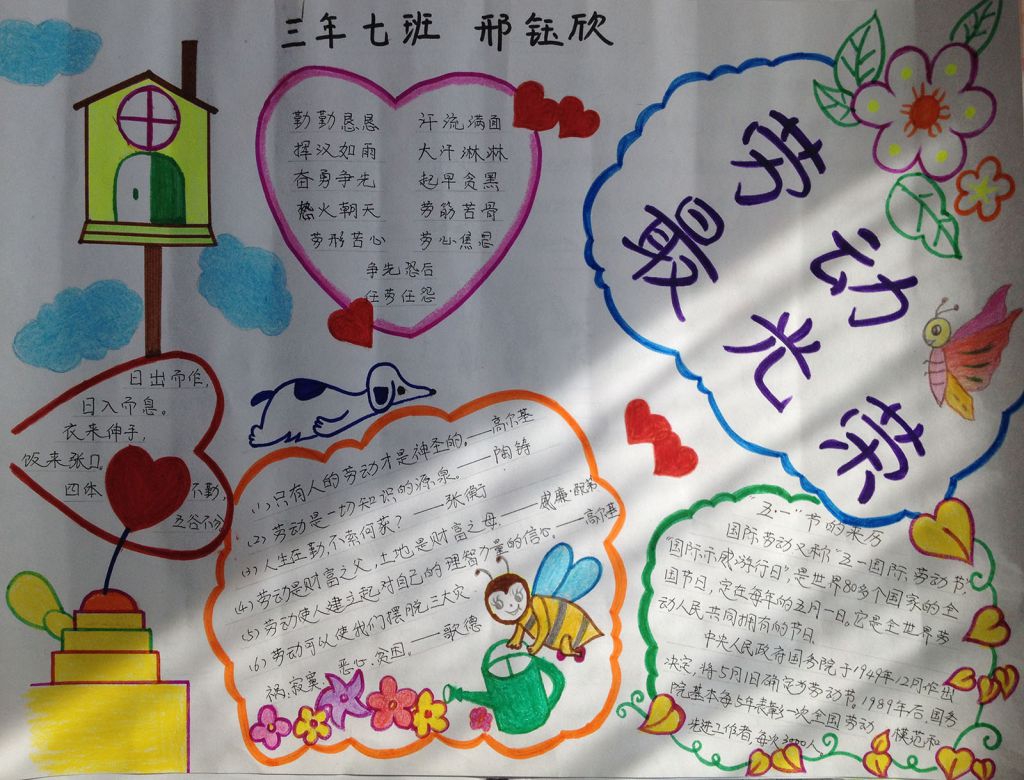 三年七班 邢钰欣
勤勤恳恳 汗流满面
挥汉如雨 大汗淋淋
奋勇争先 起早贪黑
热火朝天 劳筋苦骨
劳形苦心 劳心焦思
争先恐后
任劳任怨
劳动
最光荣
日出而作,
日入而息。
衣来伸手,
饭来张口。
四体不勤,
五谷不分
(1)只有人的劳动才是神圣的。——高尔基
(2)劳动是一切知识的源泉。——陶铸
(3)人生在勤,不索何获?——张衡
(4)劳动是财富之父,土地是财富之母。——威廉·配第
(5)劳动使人建立起对自己的理智力量的信心。——高尔基
(6)劳动可以使我们摆脱三大灾
祸:寂寞、恶心、贫困。——歌德
"五·一"节的来历
国际劳动又称"五一国际劳动节"
"国际示威游行日",是世界80多个国家的全
国节日,定在每年的五月一日。它是全世界劳
动人民共同拥有的节日.
中央人民政府国务院于1949年12月作出
决定,将5月1日确定为劳动节。1989年后,国务
院基本每5年表彰一次全国劳动模范和
先进工作者,每次3000人